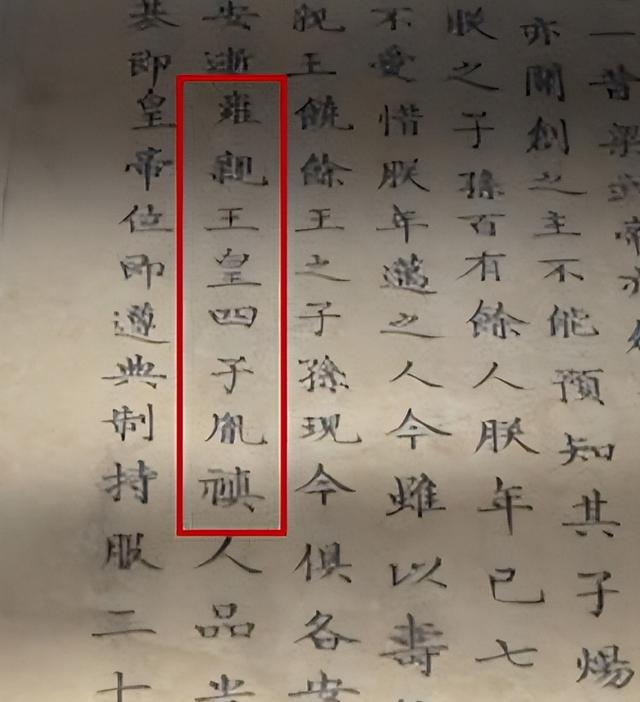 一昔梁武帝亦
亦開創之主不能預知其子煬
朕之子孫百有餘人朕年已七
不愛惜朕年邁之人今雖以壽
親王饒餘王之子孫現今俱各安
安逝雍親王皇四子胤禛人品
基即皇帝位即遵典制持服二十